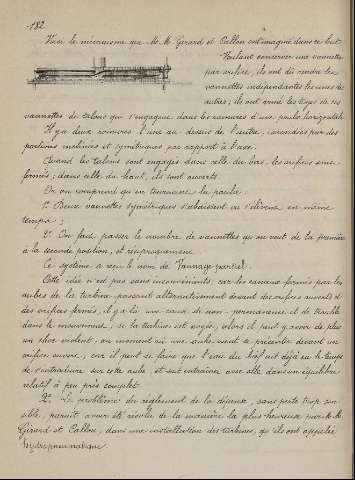 182
Voici le mécanisme que M. M. Girard et Callon ont imaginé dans ce but.
Voulant conserver une vannette
par orifice, ils ont dû rendre les
vannettes indépendantes les unes des
autres; ils ont armé les tiges de ces
vannettes de talons qui s'engagent dans les rainures d'une poulie horizontale.
Il y a deux rainures l'une au dessus de l'autre, raccordées par des
portions inclinées et symétriques par rapport à l'axe.
Quand les talons sont engagés dans celle du bas, les orifices sont
fermés; dans celle du haut, ils sont ouverts.
On comprend qu'en tournant la poulie:
1° Deux vannettes symétriques s'abaissent ou s'élèvent en même
temps;
2° On fait passer le nombre de vannettes qu'on veut de la première
à la seconde position, et réciproquement.
Ce système a reçu le nom de Vannage partiel.
Cette idée n'est pas sans inconvénients, car les canaux formés par les
aubes de la turbine passant alternativement devant des orifices ouverts et
des orifices fermés, il y a là une cause de non-permanence et de trouble
dans le mouvement; si la turbine est noyée, alors il peut y avoir de plus
un choc violent, au moment où une aube vient se présenter devant un
orifice ouvert, car il peut se faire que l'eau du bief ait déjà eu le temps
de s'introduire sur cette aube, et soit entraînée avec elle dans un équilibre
relatif à peu près complet.
2° Le problème du règlement de la dépense, sans perte trop sen-
sible, paraît avoir été résolu de la manière la plus heureuse par M. M.
Girard et Callon, dans une installation des turbines, qu'ils ont appelée
hydropneumatique.